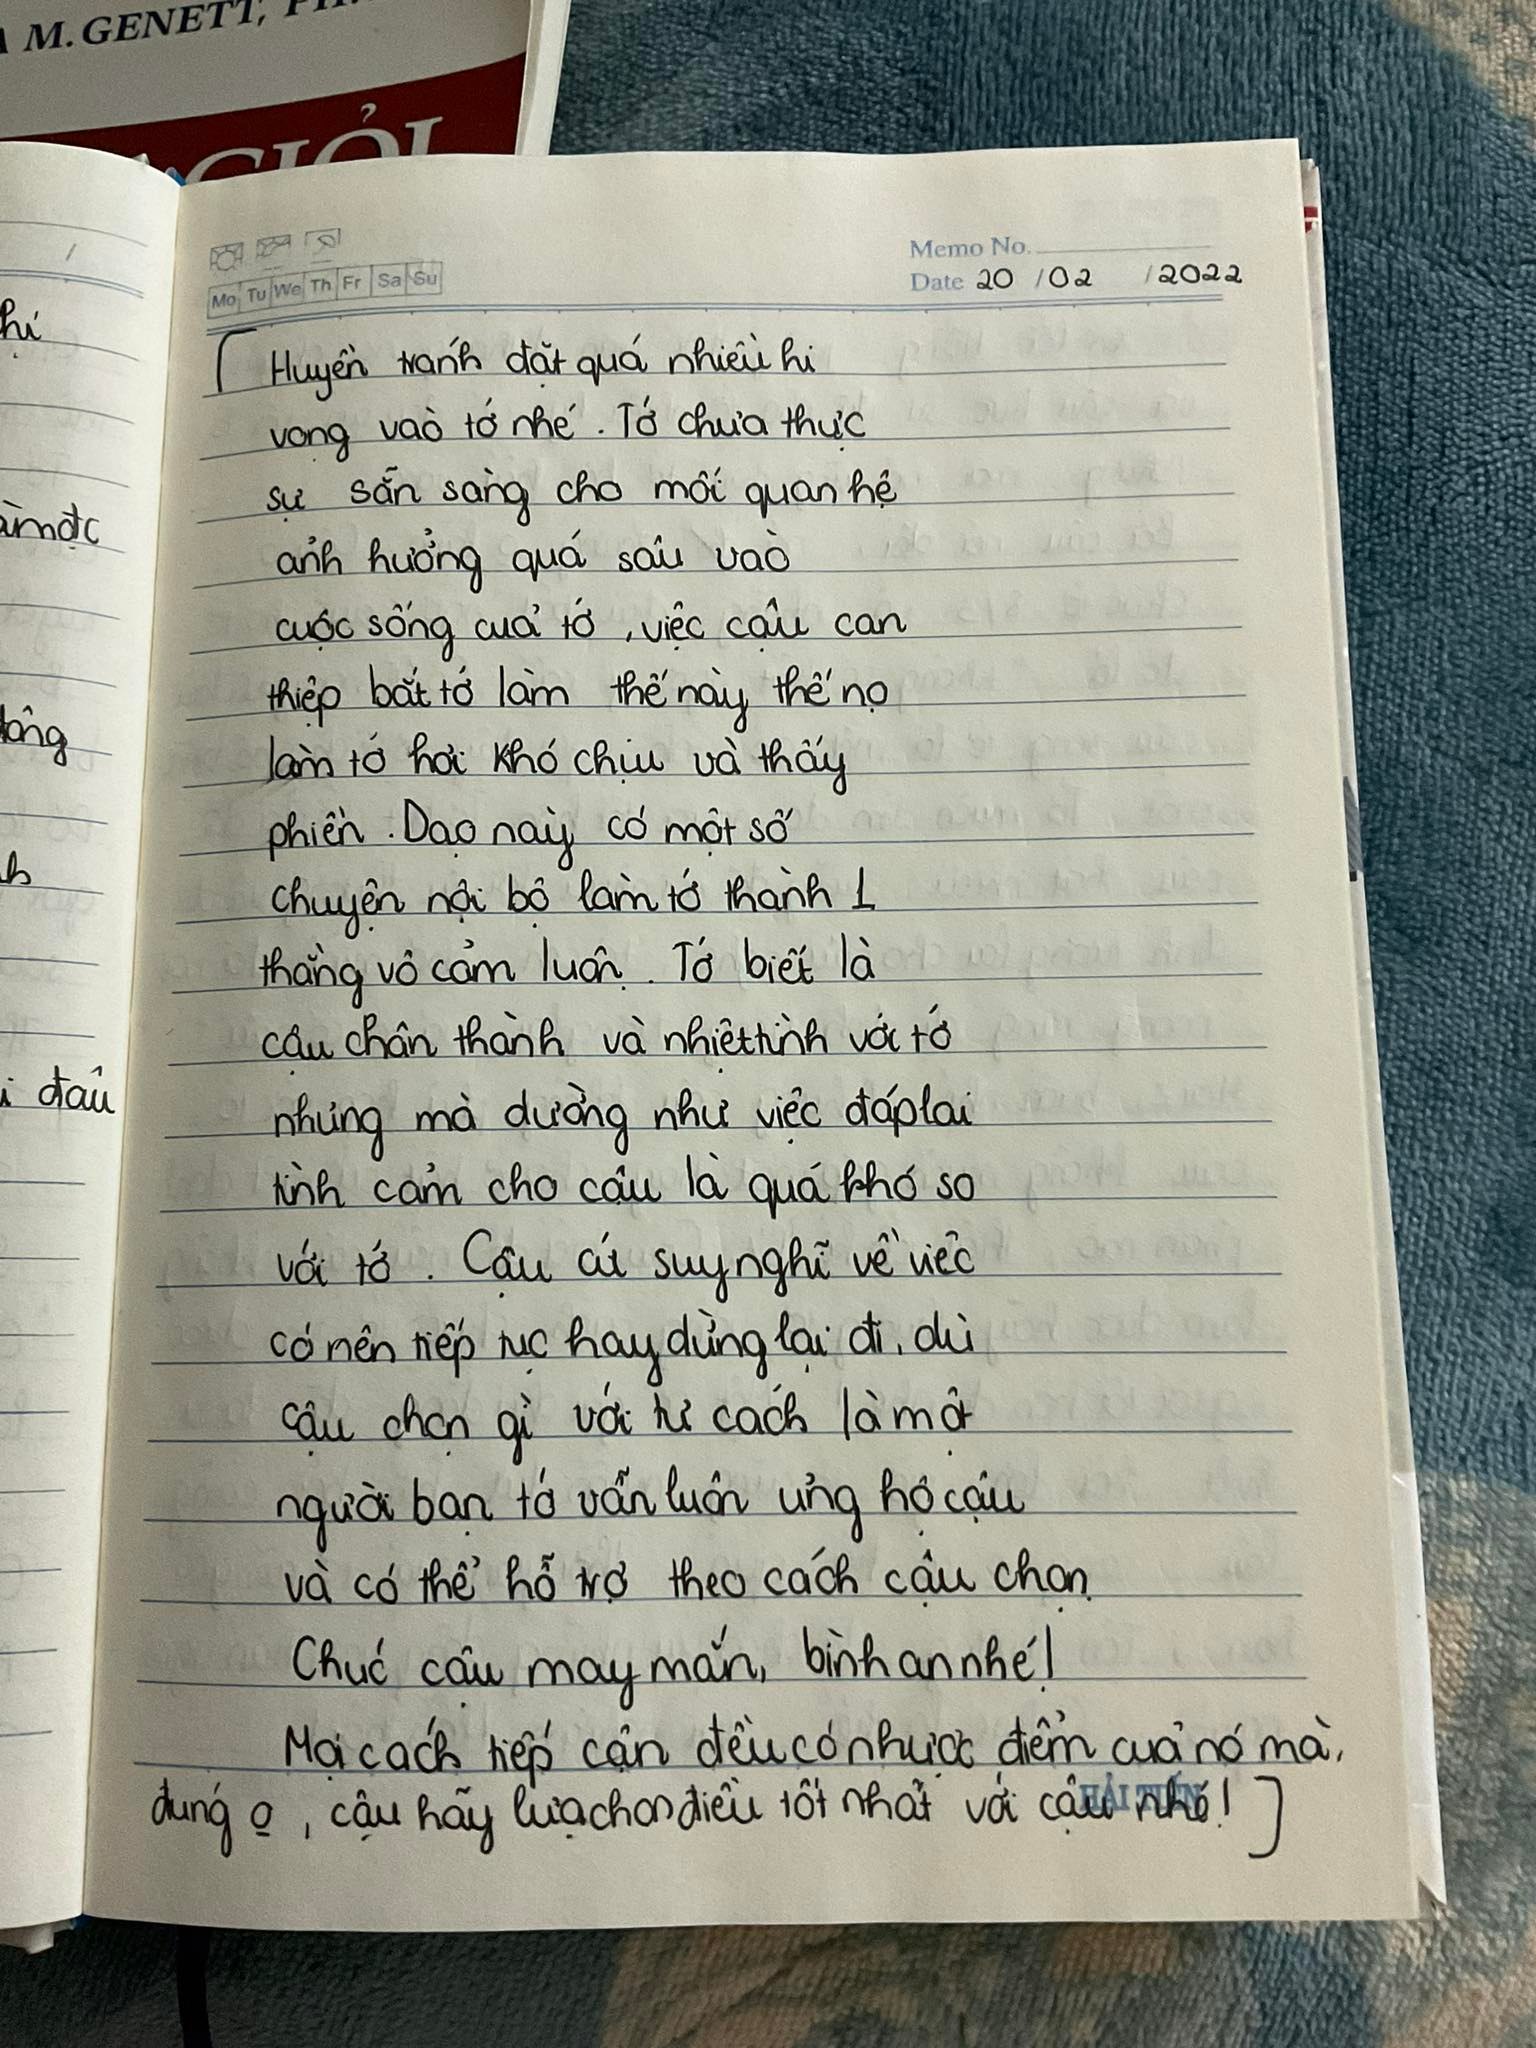 M. GENETT, PH.
GIỎI
Memo No.
Mo Tu We Th Fr Sa Su
Date 20 / 02 / 2022
Huyền tránh đặt quá nhiều hi
vọng vào tớ nhé. Tớ chưa thực
sự sẵn sàng cho mối quan hệ
ảnh hưởng quá sâu vào
cuộc sống của tớ, việc cậu can
thiệp bắt tớ làm thế này thế nọ
làm tớ hơi khó chịu và thấy
phiền. Dạo này có một số
chuyện nội bộ làm tớ thành 1
thằng vô cảm luôn. Tớ biết là
cậu chân thành và nhiệt tình với tớ
nhưng mà dường như việc đáp lại
tình cảm cho cậu là quá khó so
với tớ. Cậu cứ suy nghĩ về việc
có nên tiếp tục hay dừng lại đi, dù
cậu chọn gì với tư cách là một
người bạn tớ vẫn luôn ủng hộ cậu
và có thể hỗ trợ theo cách cậu chọn.
Chúc cậu may mắn, bình an nhé!
Mọi cách tiếp cận đều có nhược điểm của nó mà,
đúng ọ, cậu hãy lựa chọn điều tốt nhất với cậu nhé!]
hị
àm đc
đông
h
i đâu